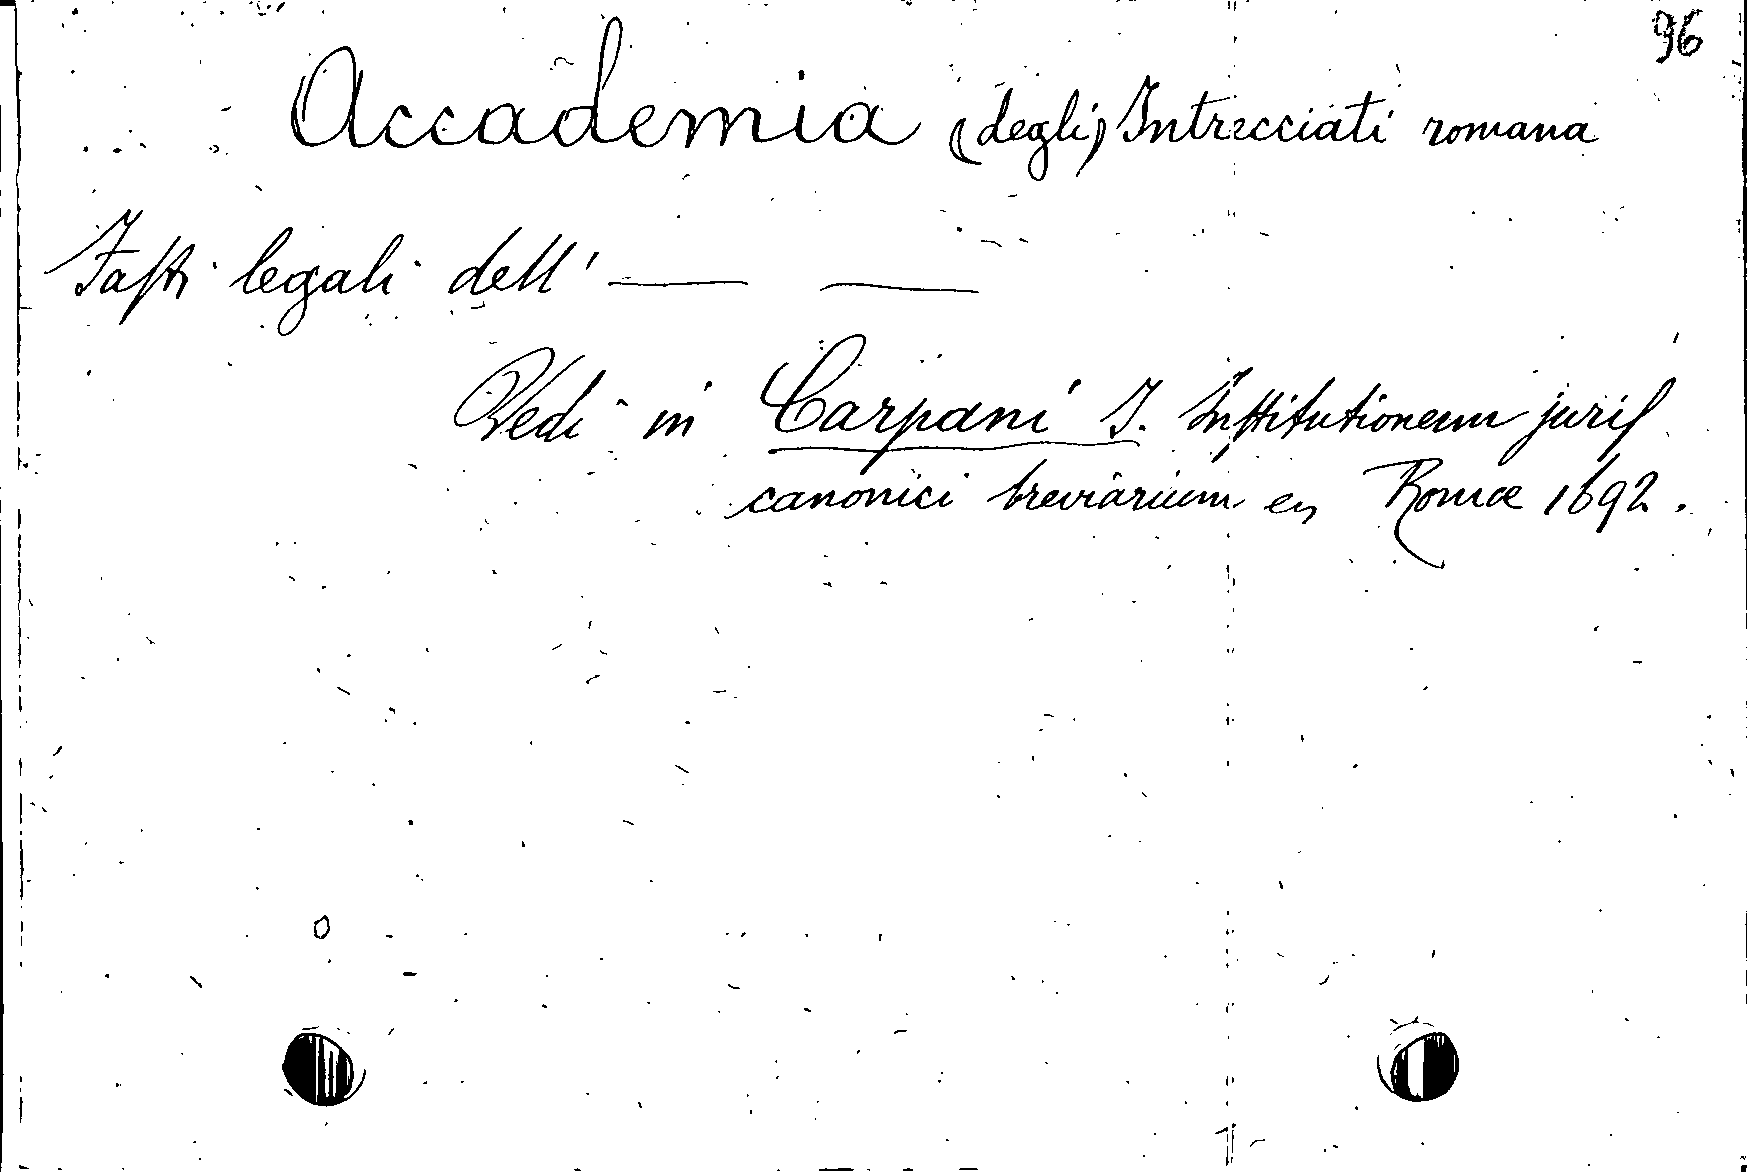 96
Accademia (degli) Intrecciati romana
Fasti legali dell' — —
Vedi in Carpani J. Institutionum juris
canonici breviarium en Romæ 1692.